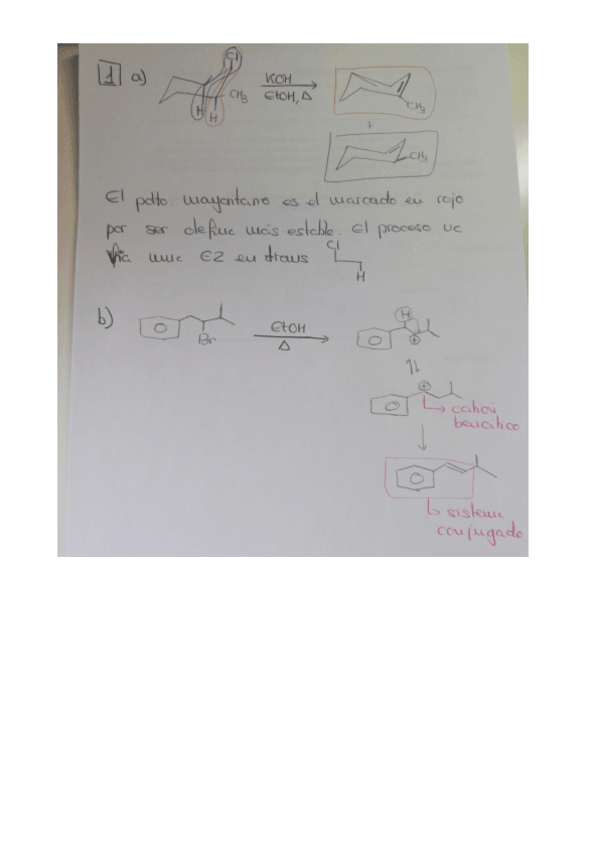 1 a)
Cl
KOH
EtOH, Δ
CH3
H
H
CH3
+
CH3
El pdto. mayoritario es el marcado en rojo
por ser olefina más estable. El proceso va
vía una E2 en trans
Cl
H
b)
Br
EtOH
Δ
H
⊕
⇌
⊕
catión
bencílico
sistema
conjugado.